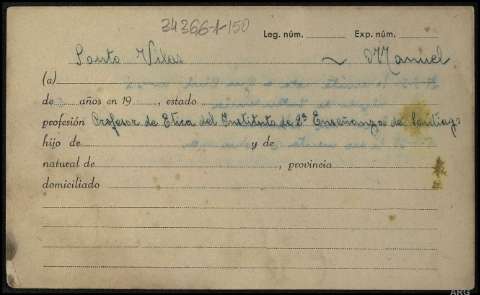 34366-1-150
Leg. núm. Exp. núm.
Souto Vilas ~ Manuel
(a)
de años en 19 , estado
profesión Profesor de Etica del Instituto de 2ª Enseñanza de Santiago
hijo de y de
natural de , provincia
domiciliado
ARG